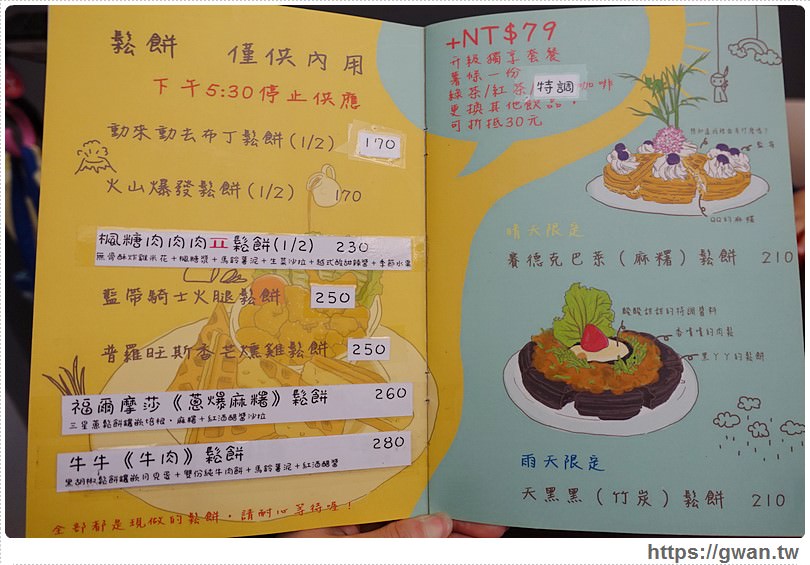 鬆餅 僅供內用
下午5:30停止供應
動來動去布丁鬆餅(1/2) 170
火山爆發鬆餅(1/2) 170
楓糖肉肉肉ㄫ鬆餅(1/2) 230
無骨酥炸雞米花+楓糖漿+馬鈴薯泥+生菜沙拉+越式酸甜辣醬+季節水果
藍帶騎士火腿鬆餅 250
普羅旺斯香芒燻雞鬆餅 250
福爾摩莎《蔥爆麻糬》鬆餅 260
三星蔥鬆餅糰嵌培根,麻糬+紅酒醋醬沙拉
牛牛《牛肉》鬆餅 280
黑胡椒鬆餅糰嵌月見蛋+雙份純牛肉餅+馬鈴薯泥+紅酒醋醬
全部都是現做的鬆餅,請耐心等待喔!
+NT$79
升級獨享套餐
薯條一份
綠茶/紅茶/特調咖啡
更換其他飲品,
可折抵30元
藍莓
QQ的麻糬
晴天限定
賽德克巴萊(麻糬)鬆餅 210
酸酸甜甜的特調醬料
香噴噴的肉鬆
黑ㄚㄚ的鬆餅
雨天限定
天黑黑(竹炭)鬆餅 210
https://gwan.tw